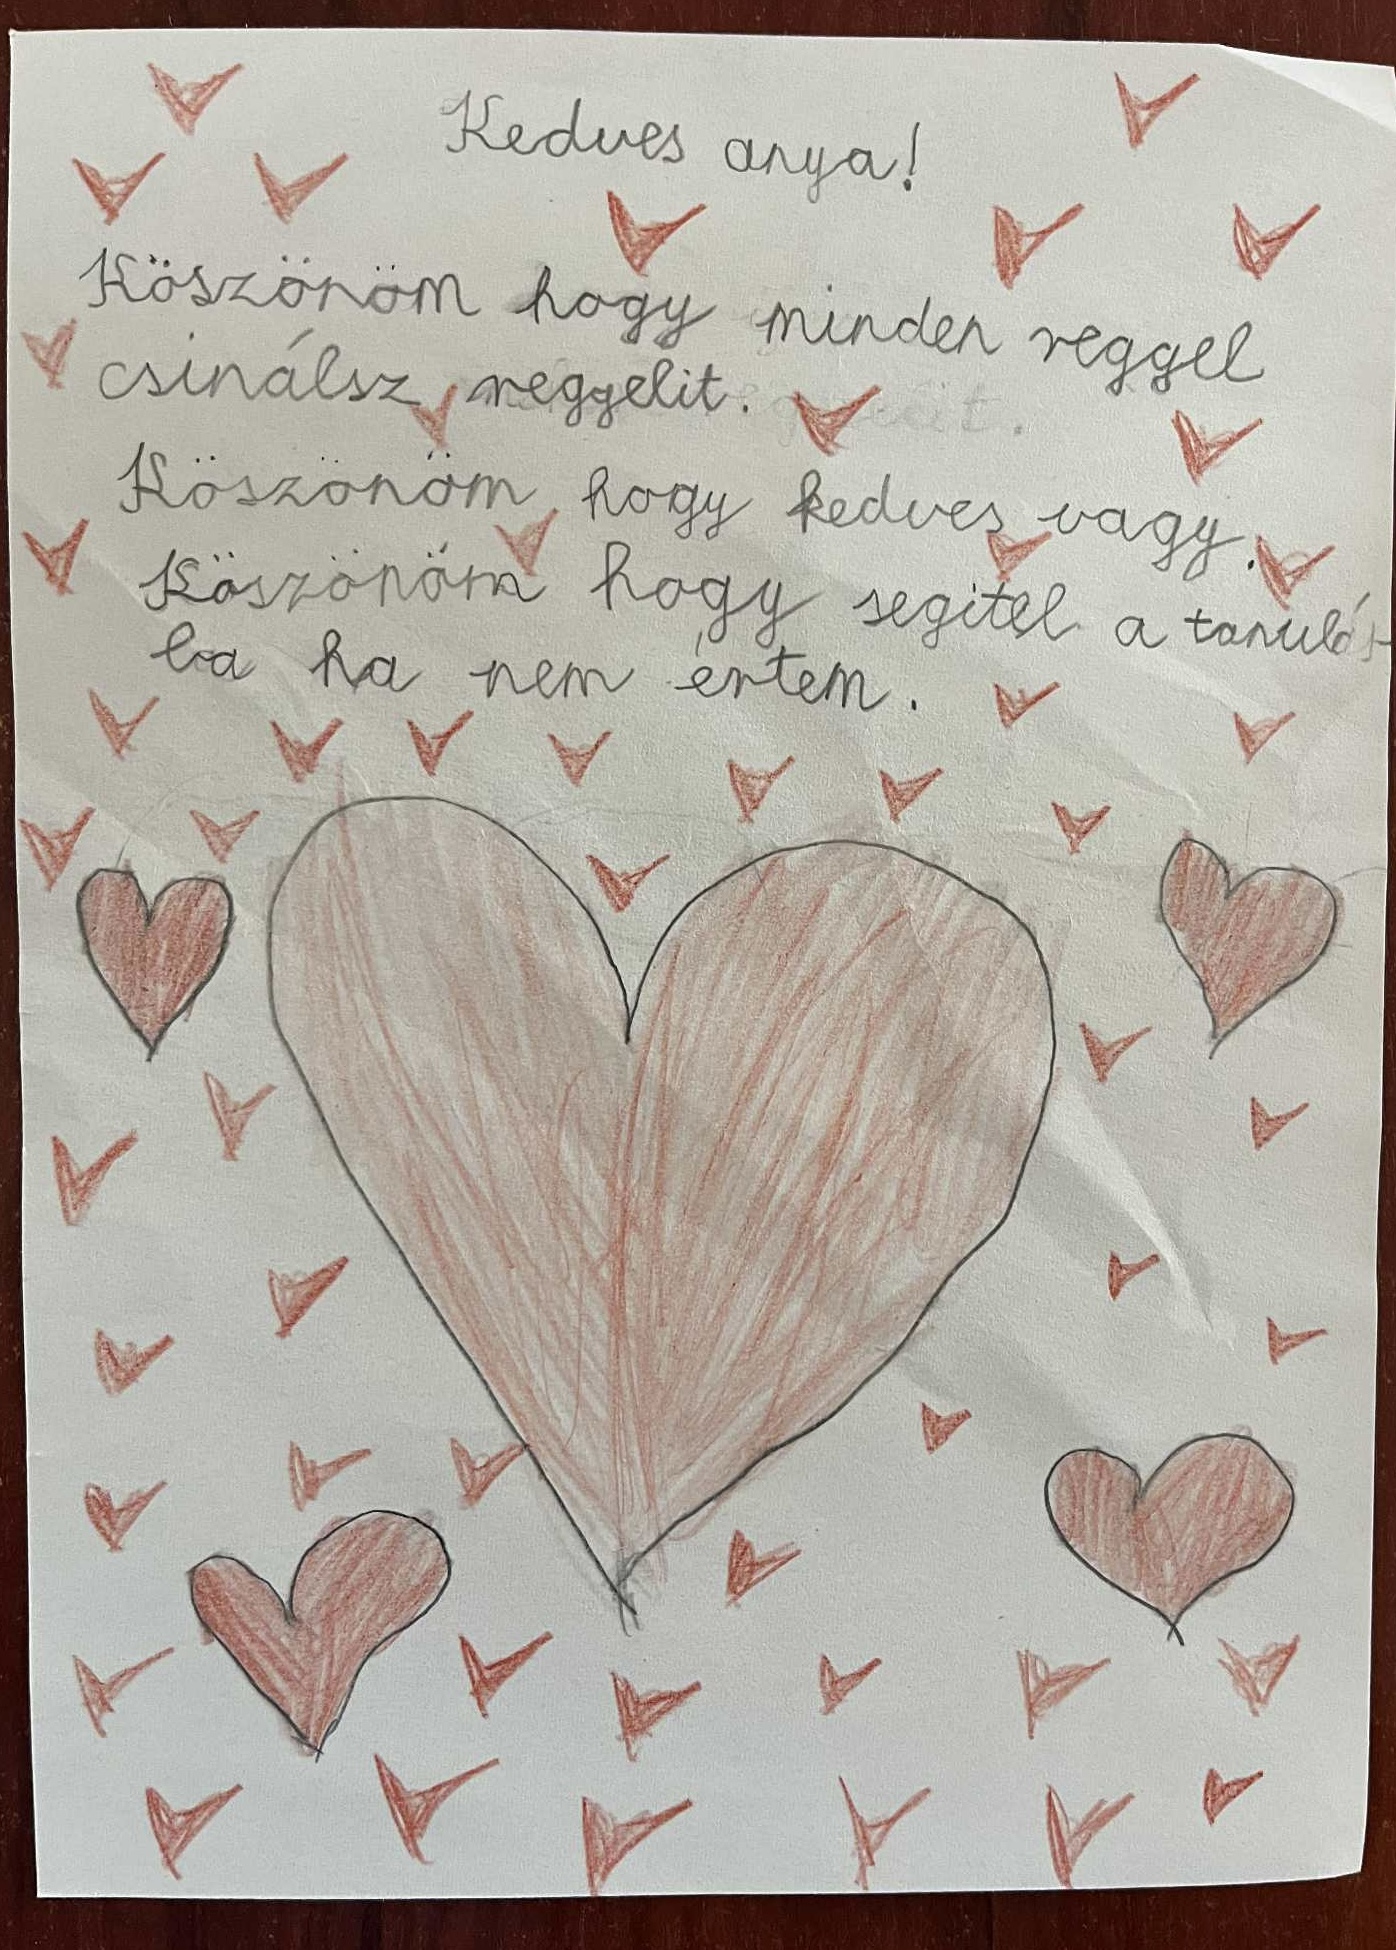 Kedves anya!
Köszönöm hogy minden reggel
csinálsz reggelit.
Köszönöm hogy kedves vagy.
Köszönöm hogy segitel a tanulás
ba ha nem értem.